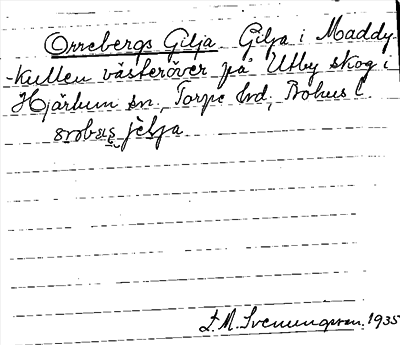 Orrebergs Gilja Gilja i Maddy-
-kullen västeröver på Utby skog i
Hjärtum sn, Torpe hd, Bohus l.
jilja
F. M. Svenungsson. 1935